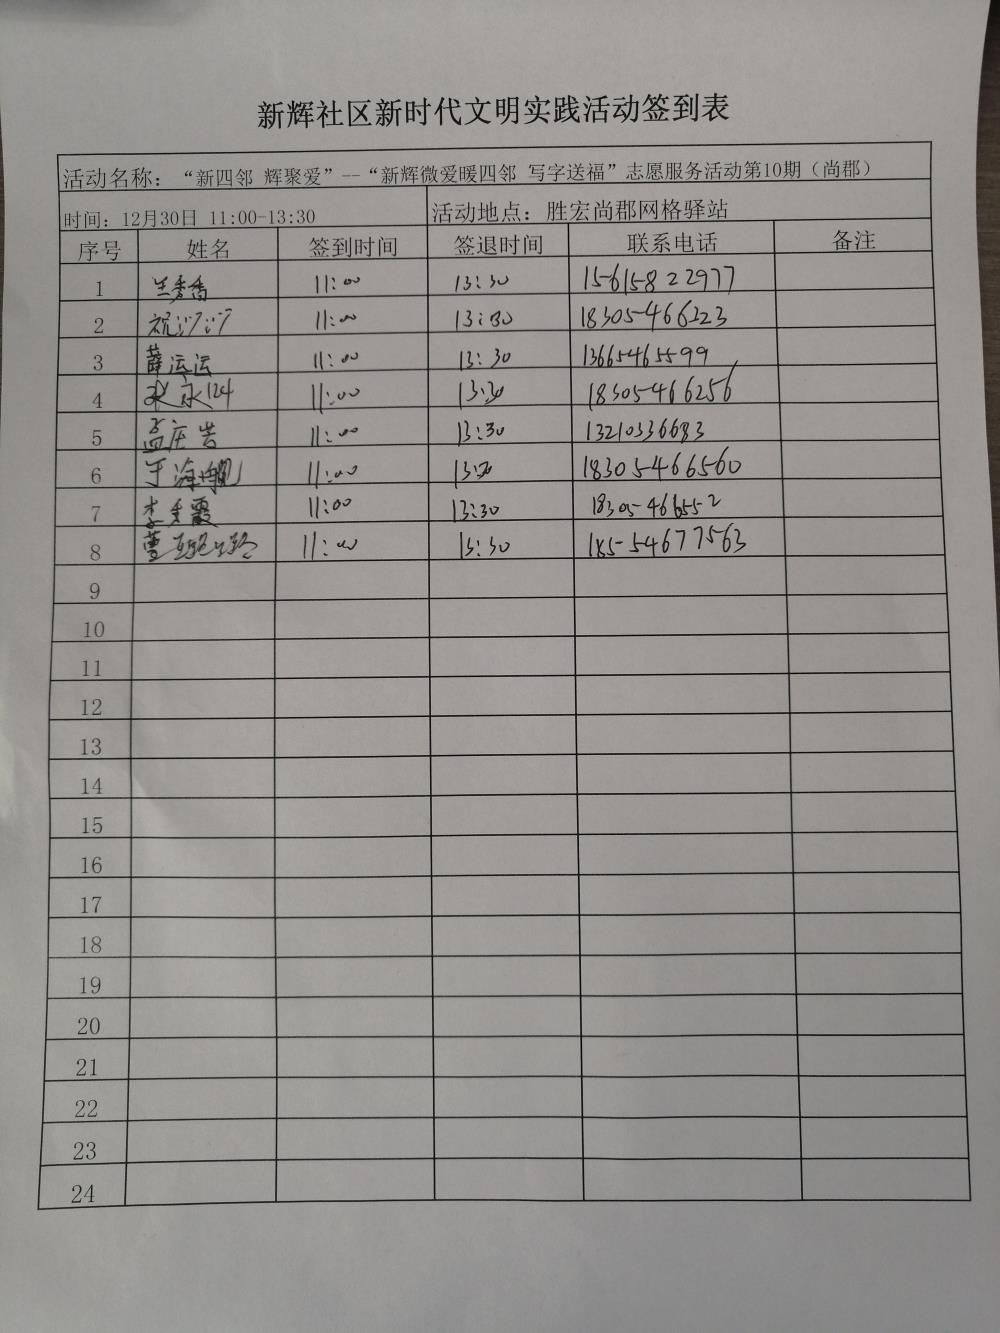 新辉社区新时代文明实践活动签到表
活动名称：“新四邻 辉聚爱”--“新辉微爱暖四邻 写字送福”志愿服务活动第10期（尚郡）
时间：12月30日 11:00-13:30 活动地点：胜宏尚郡网格驿站
序号 姓名 签到时间 签退时间 联系电话 备注
1 兰秀香 11:00 13:30 15615822977
2 祝沙沙 11:00 13:30 18305466223
3 薛运运 11:00 13:30 13665465599
4 11:00 13:30 18305466256
5 孟庄 11:00 13:30 13210336683
6 于海 11:00 13:30 18305466560
7 李秀霞 11:00 13:30 18305466552
8 曹 11:00 13:30 18554677563
9
10
11
12
13
14
15
16
17
18
19
20
21
22
23
24